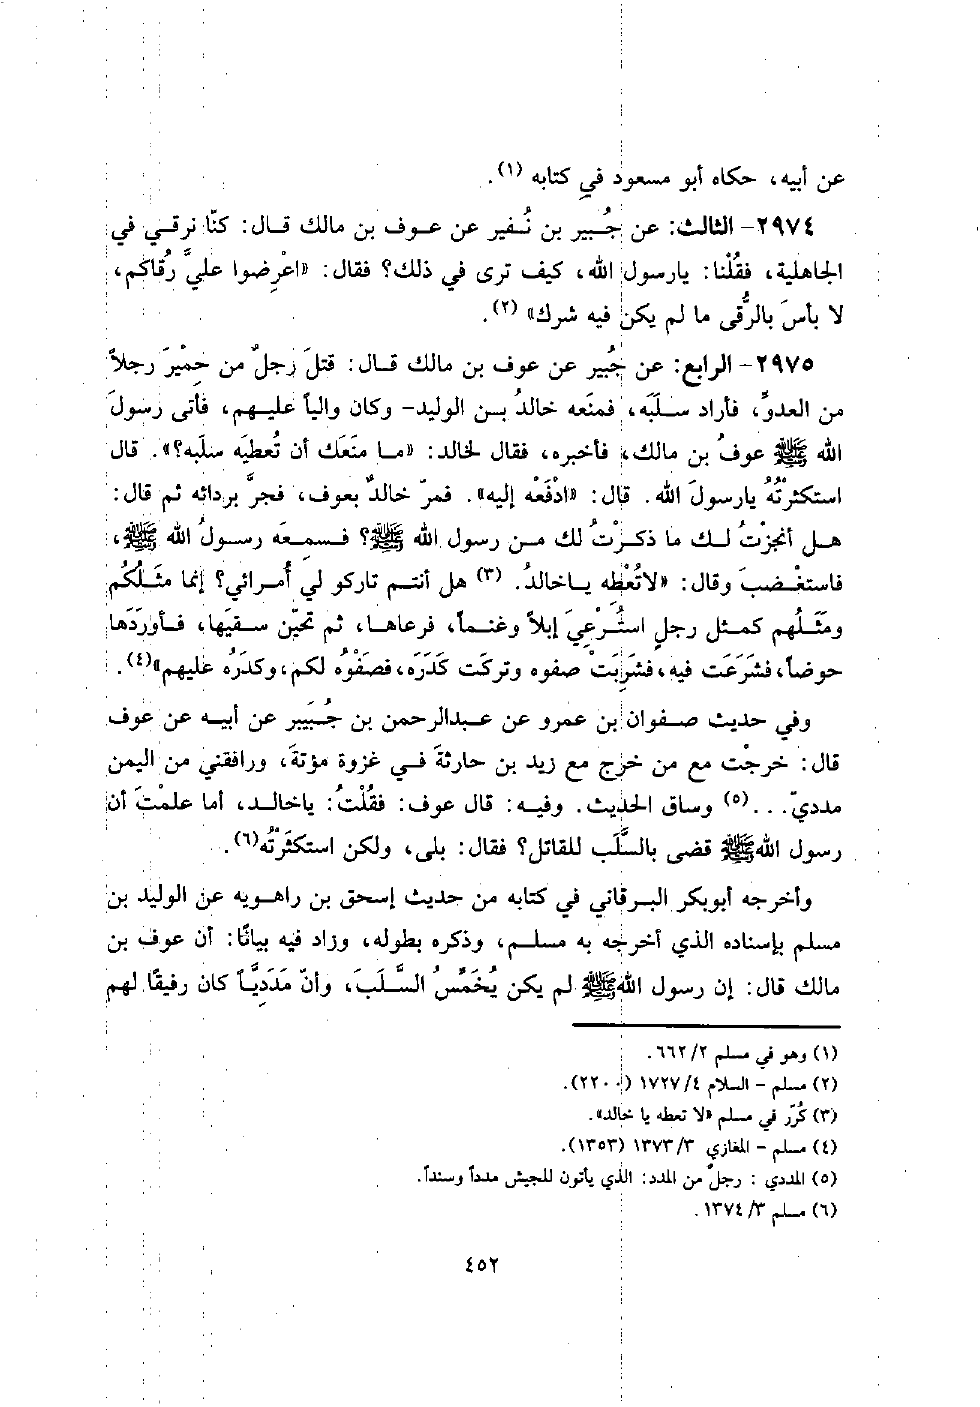 عن أبيه، حكاه أبو مسعود في كتابه (١).
٢٩٧٤- الثالث: عن جُبير بن نُفير عن عوف بن مالك قال: كنّا نرقي في
الجاهلية، فقُلْنا: يارسول الله، كيف ترى في ذلك؟ فقال: «اعْرِضوا عليَّ رُقاكم،
لا بأسَ بالرُّقى ما لم يكن فيه شرك» (٢).
٢٩٧٥- الرابع: عن جُبير عن عوف بن مالك قال: قتلَ رَجلٌ من حِمْيَرَ رجلاً
من العدوِّ، فأراد سلَبَه، فمنَعه خالدُ بن الوليد- وكان والياً عليهم، فأتى رسولَ
الله ﷺ عوفُ بن مالك، فأخبره، فقال لخالد: «ما منَعَك أن تُعطيَه سلَبه؟». قال
استكثرْتُهُ يارسولَ الله. قال: «ادْفَعْه إليه». فمرّ خالدٌ بعوف، فجرَّ بردائه ثم قال:
هل أنجزْتُ لك ما ذكرْتُ لك من رسول الله ﷺ؟ فسمِعَه رسولُ الله ﷺ،
فاستغْضبَ وقال: «لاتُعْطِه ياخالدُ. (٣) هل أنتم تاركو لي أُمرائي؟ إنما مثَلُكُم
ومَثَلُهم كمثل رجلٍ استُرْعِيَ إبلاً وغنماً، فرعاها، ثم تحيّن سقيَها، فأورَدَها
حوضاً، فشَرَعَت فيه، فشَرِبَتْ صفوه وتركت كَدَرَه، فصَفْوُه لكم، وكدَرُه عليهم»(٤).
وفي حديث صفوان بن عمرو عن عبدالرحمن بن جُبَير عن أبيه عن عوف
قال: خرجْت مع من خرج مع زيد بن حارثةَ في غزوة مؤتةَ، ورافقني من اليمن
مدديّ...(٥) وساق الحديث. وفيه: قال عوف: فقُلْتُ: ياخالد، أما علمْتَ أن
رسول الله ﷺ قضى بالسَّلَب للقاتل؟ فقال: بلى، ولكن استكثَرْتُه(٦).
وأخرجه أبوبكر البرقاني في كتابه من حديث إسحق بن راهويه عن الوليد بن
مسلم بإسناده الذي أخرجه به مسلم، وذكره بطوله، وزاد فيه بيانًا: أن عوف بن
مالك قال: إن رسول الله ﷺ لم يكن يُخَمِّسُ السَّلَبَ، وأنّ مَدَديَّاً كان رفيقًا لهم
(١) وهو في مسلم ٢/ ٦٦٢.
(٢) مسلم - السلام ٤/ ١٧٢٧ (٢٢٠٠).
(٣) كُرِّر في مسلم «لا تعطه يا خالد».
(٤) مسلم - المغازي ٣/ ١٣٧٣ (١٣٥٣).
(٥) المددي : رجلٌ من المدد: الذي يأتون للجيش مدداً وسنداً.
(٦) مسلم ٣/ ١٣٧٤.
٤٥٢